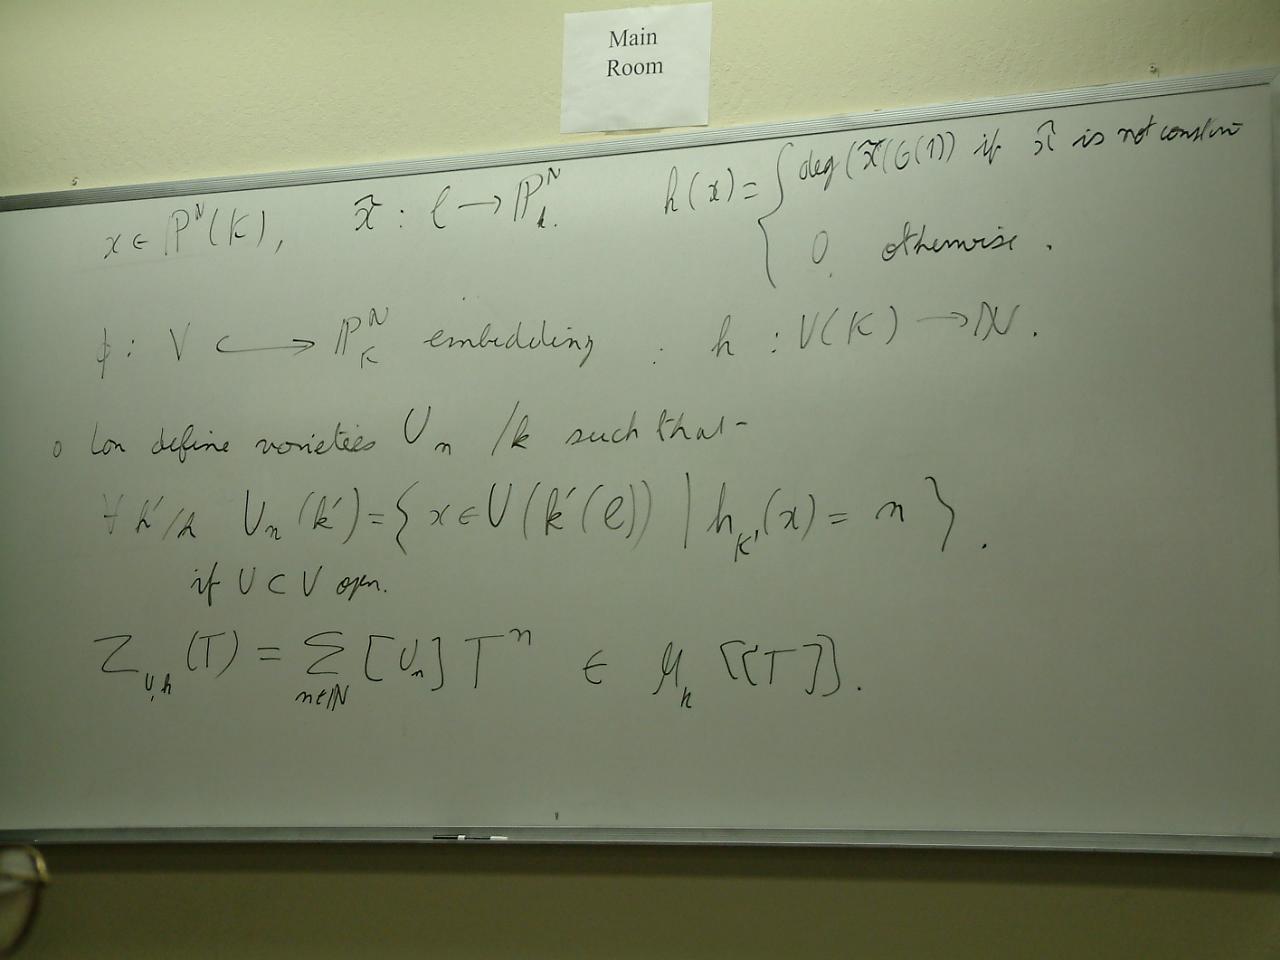 Main
Room
x ∈ ℙ^N(K), x̃ : 𝒞 → ℙ^N_k. h(x) = { deg(x̃*(O(1)) if x̃ is not constan
0 otherwise.
ϕ : V ↪ ℙ^N_K embedding : h : V(K) → ℕ.
o Can define varieties U_n /k such that
∀ k'/k U_n(k') = { x ∈ U(k'(𝒞)) | h_{K'}(x) = n }.
if U ⊂ V open.
Z_{U,h}(T) = Σ_{n∈ℕ} [U_n] T^n ∈ ℳ_k [[T]].